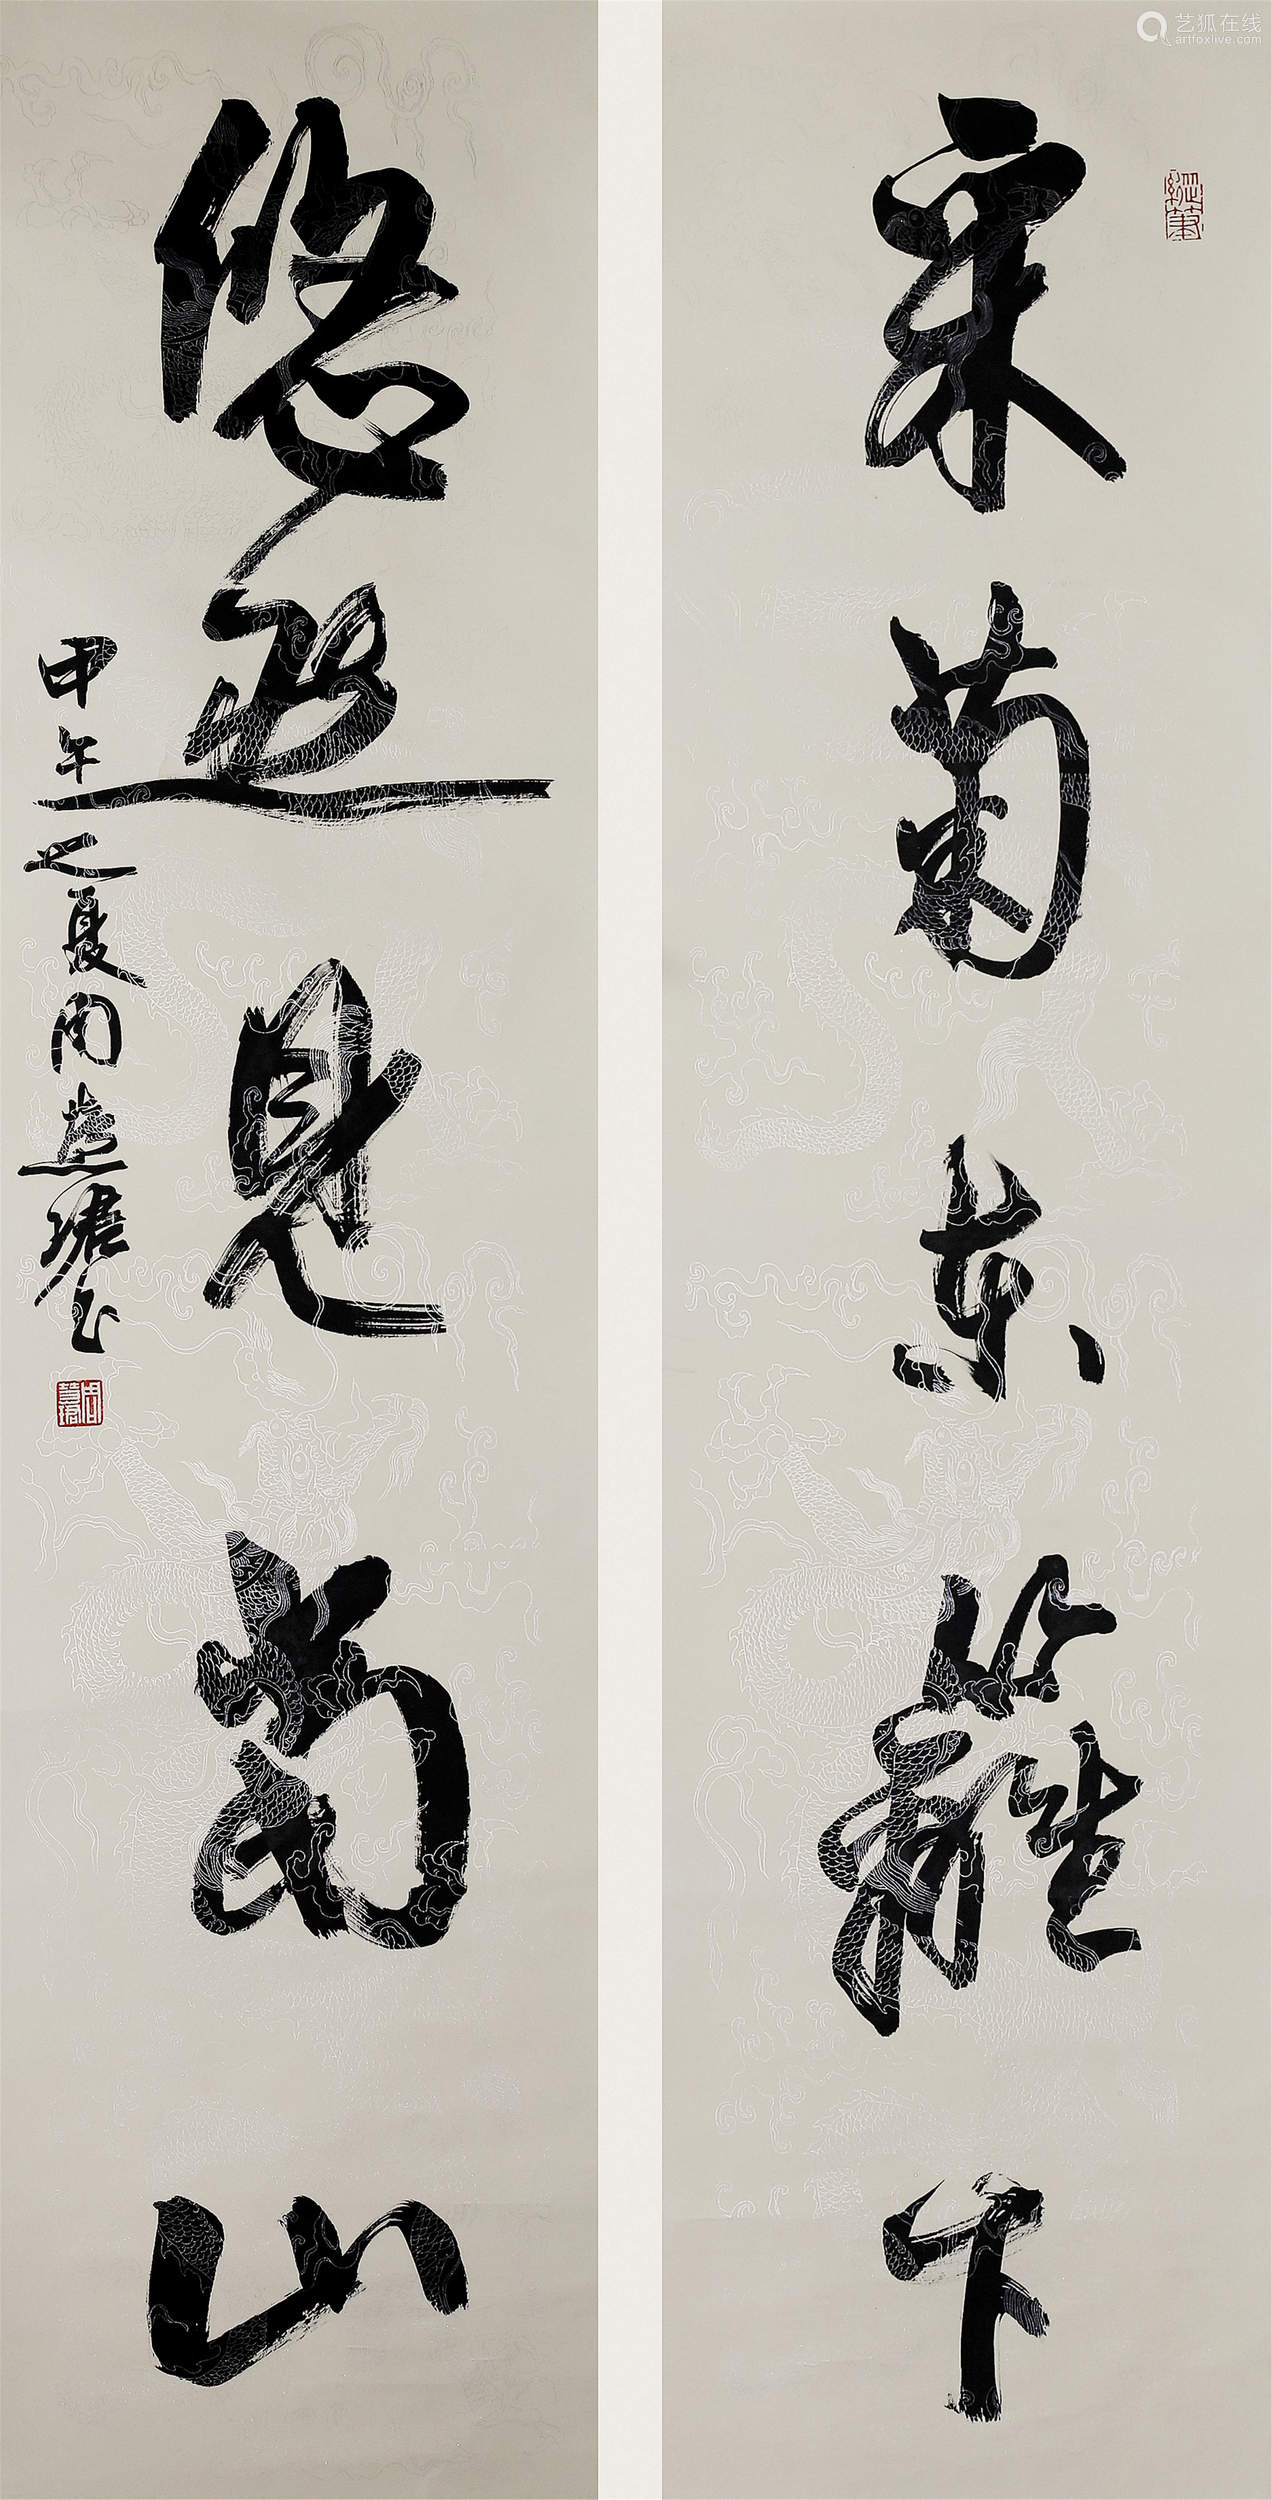 采菊东篱下
悠然见南山
甲午之夏周慧珺书
周慧珺
艺狐在线
artfoxlive.com